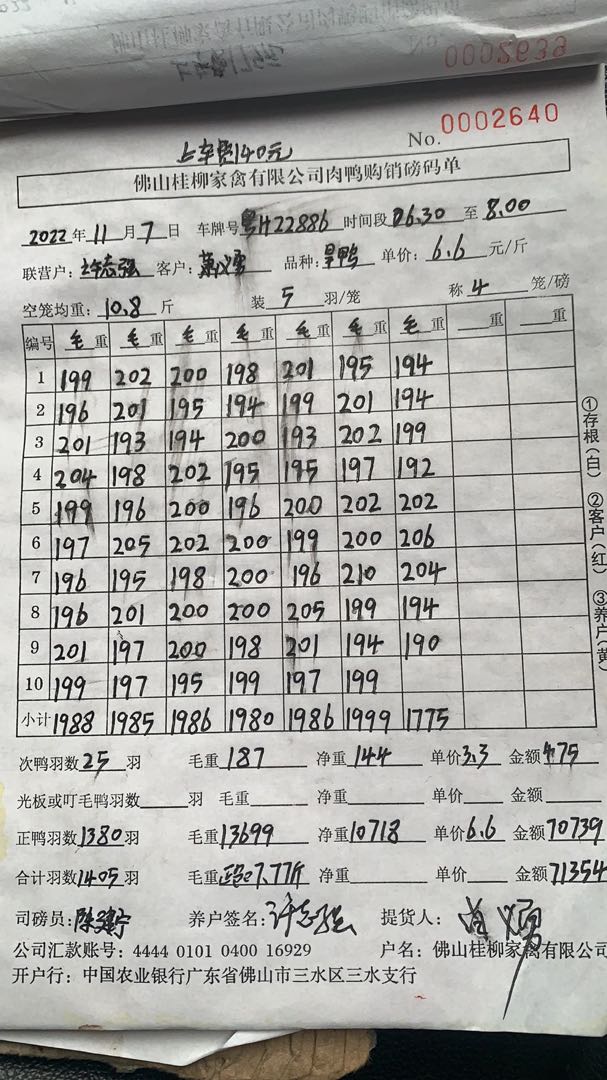 0002639
上车费140元
No. 0002640
佛山桂柳家禽有限公司肉鸭购销磅码单
2022年11月7日 车牌号粤H22886 时间段06.30至8.00
联营户:许志强 客户: 品种:旱鸭 单价:6.6元/斤
空笼均重:10.8斤 装5羽/笼 称4笼/磅
编号 毛重 毛重 毛重 毛重 毛重 毛重 毛重 重 重
1 199 202 200 198 201 195 194
2 196 201 195 194 199 201 194
3 201 193 194 200 193 202 199
4 204 198 202 195 195 197 192
5 199 196 200 196 200 202 202
6 197 205 202 200 199 200 206
7 196 195 198 200 196 210 204
8 196 201 200 200 205 199 194
9 201 197 200 198 201 194 190
10 199 197 195 199 197 199
小计 1988 1985 1986 1980 1986 1999 1775
次鸭羽数25羽 毛重187 净重144 单价3.3 金额475
光板或叮毛鸭羽数 羽 毛重 净重 单价 金额
正鸭羽数1380羽 毛重13699 净重10718 单价6.6 金额70739
合计羽数1405羽 毛重 7.77斤 净重 单价 金额71354
司磅员: 养户签名:许志强 提货人:
公司汇款账号:4444 0101 0400 16929 户名:佛山桂柳家禽有限公司
开户行:中国农业银行广东省佛山市三水区三水支行
①存根(白) ②客户(红) ③养户(黄)